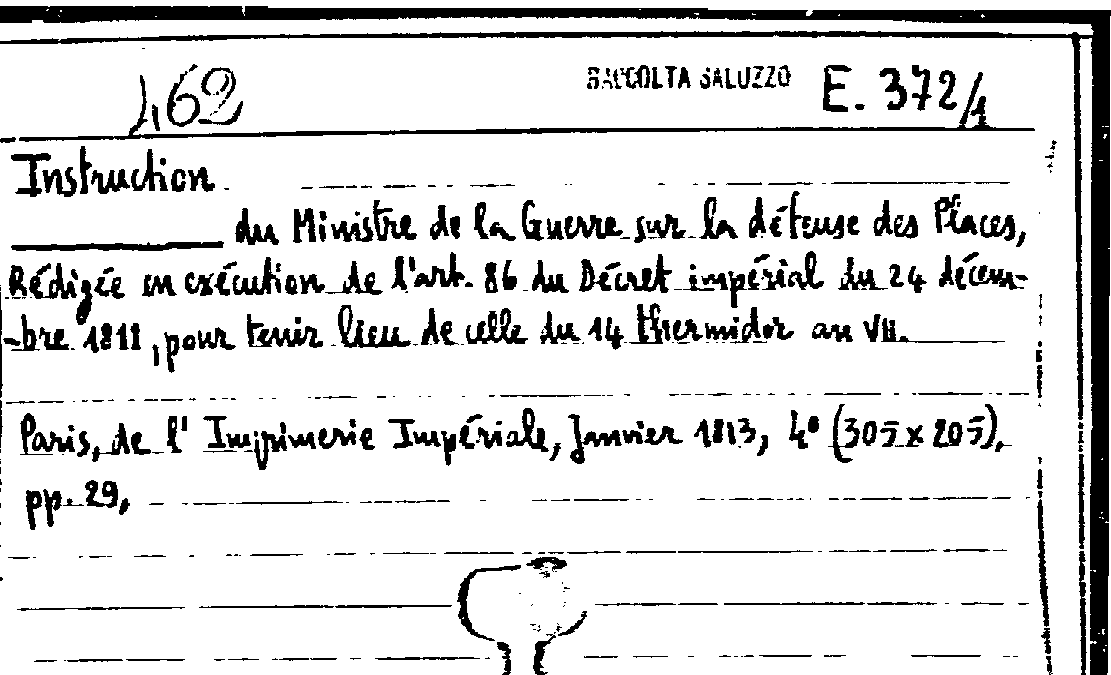 462 RACCOLTA SALUZZO E. 372/1
Instruction
du Ministre de la Guerre sur la défense des Places,
Rédigée en exécution de l'art. 86 du Décret impérial du 24 décem-
-bre 1811, pour tenir lieu de celle du 14 thermidor an VII.
Paris, de l'Imprimerie Impériale, Janvier 1813, 4° (305 x 205),
pp. 29,